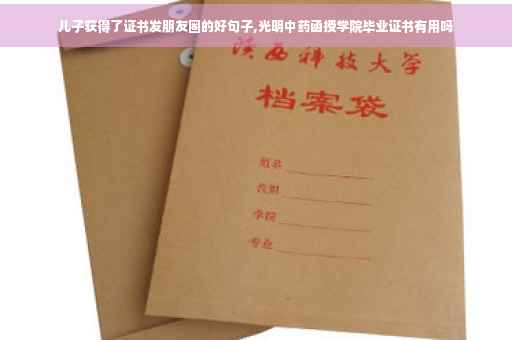 儿子获得了证书发朋友圈的好句子,光明中药函授学院毕业证书有用吗
陕西科技大学
档案袋
姓名
学院
专业